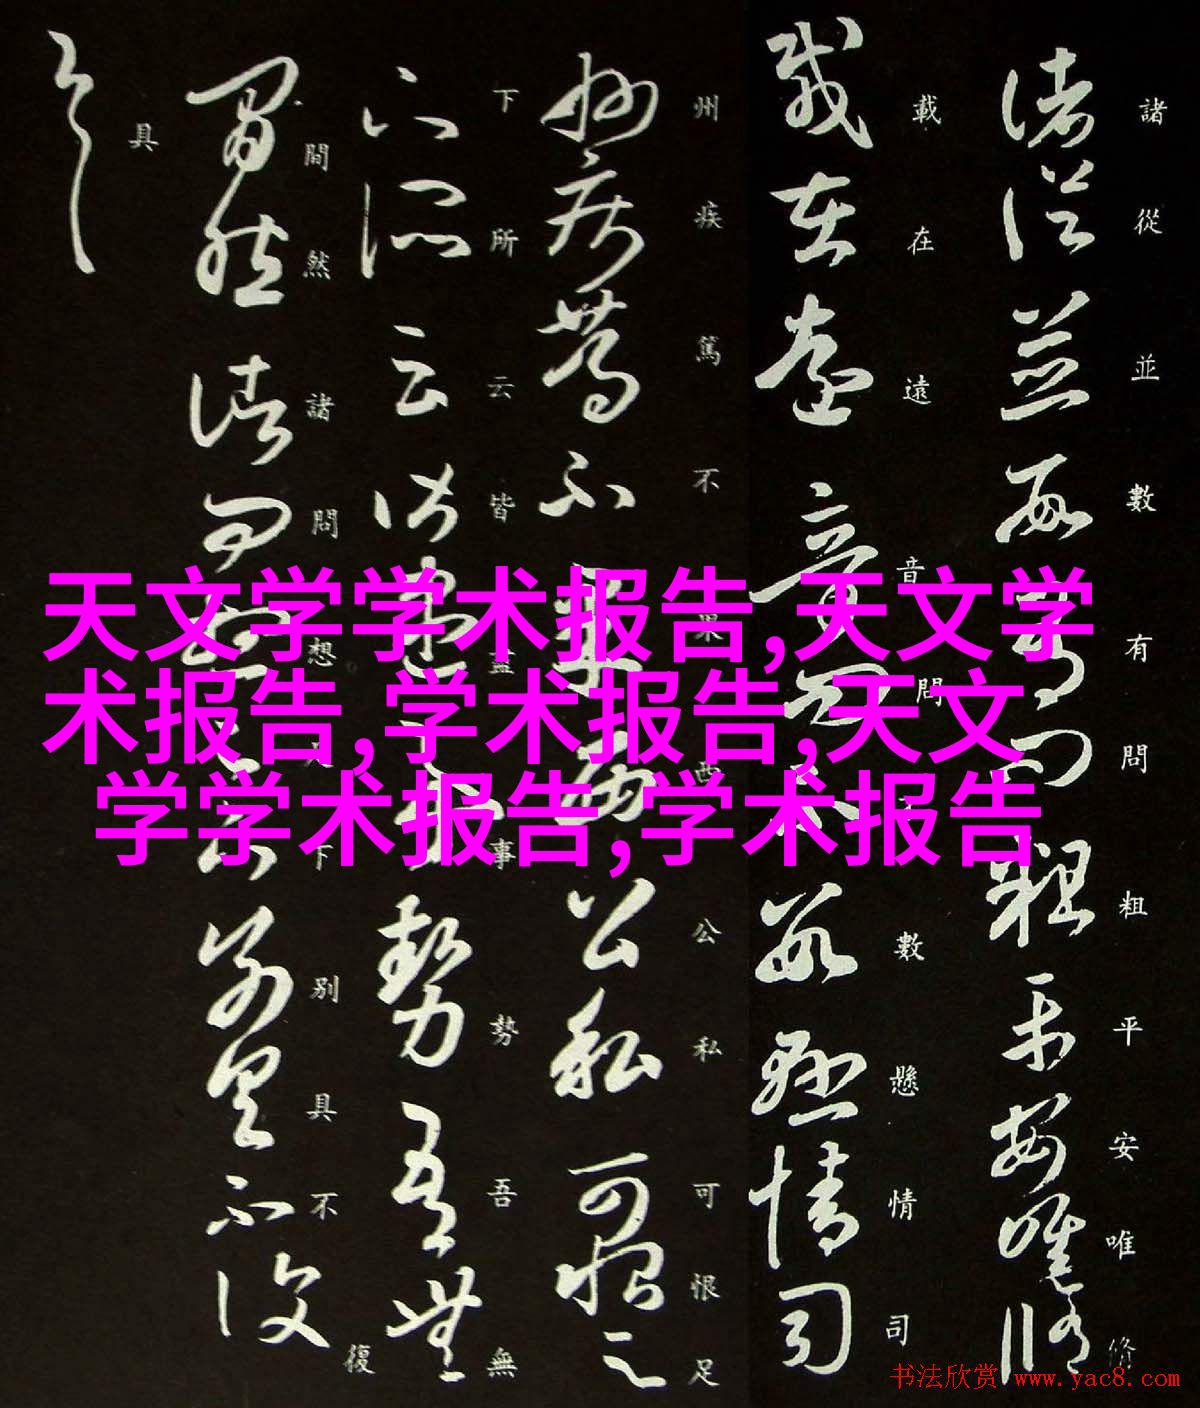 諸從並數有問粗平安唯修
載在遠音問數懸情司
州疾篤不果西公私可恨足
下所云皆盡事勢吾無
間然諸問想下別具不復
具
天文学学术报告,天文学
术报告,学术报告,天文
学学术报告,学术报告
书法欣赏 www.yac8.com